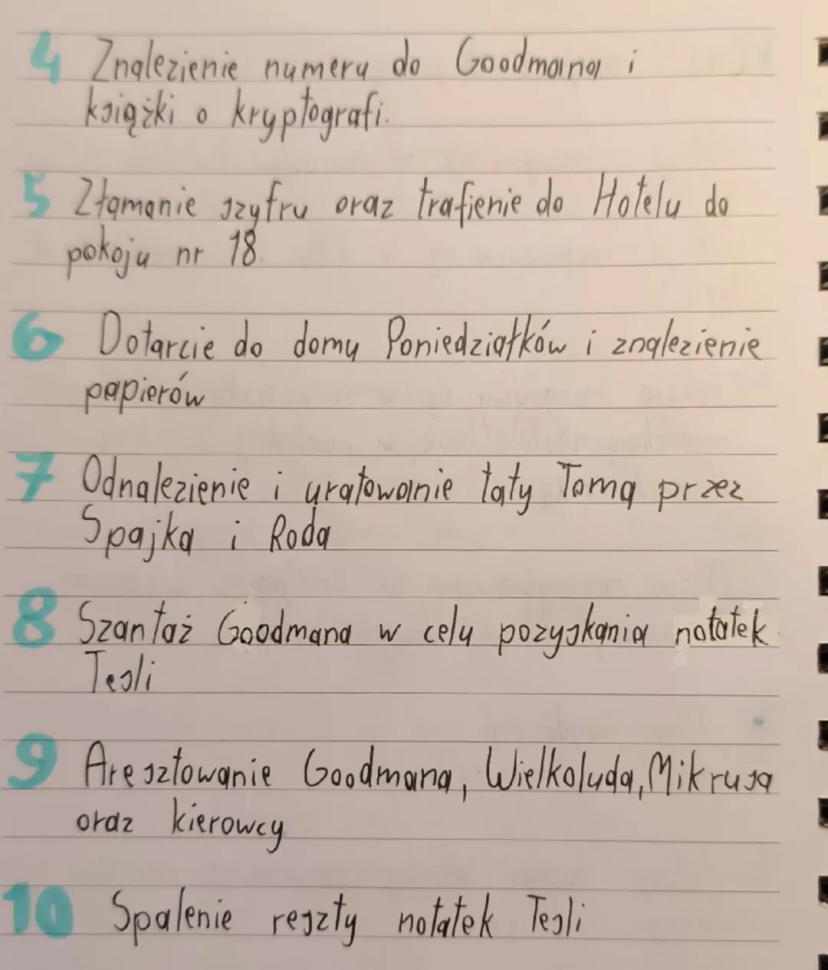 4 Znalezienie numeru do Goodmana i
książki o kryptografi.
5 Złamanie szyfru oraz trafienie do Hotelu do
pokoju nr 18
6 Dotarcie do domu Poniedziałków i znalezienie
papierów
7 Odnalezienie i uratowanie taty Toma przez
Spajka i Roda
8 Szantaż Goodmana w celu pozyskania notatek
Tesli
9 Aresztowanie Goodmana, Wielkoluda, Mikrusa
oraz kierowcy
10 Spalenie reszty notatek Tesli